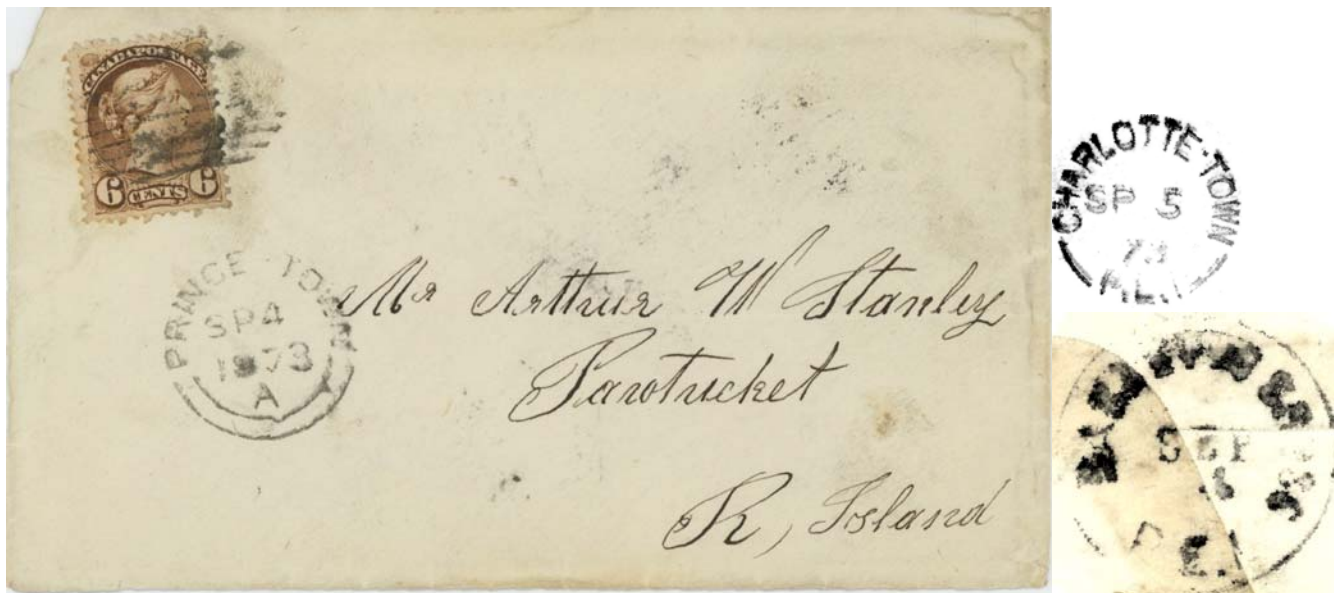 CANADA POSTAGE
6 CENTS 6
PRINCE-TOWN
SP 4
1873
A
Mr Arthur W Stanley
Pawtucket
R, Island
CHARLOTTE-TOWN
SP 5
73
P.E.I
SEP
P.E.I